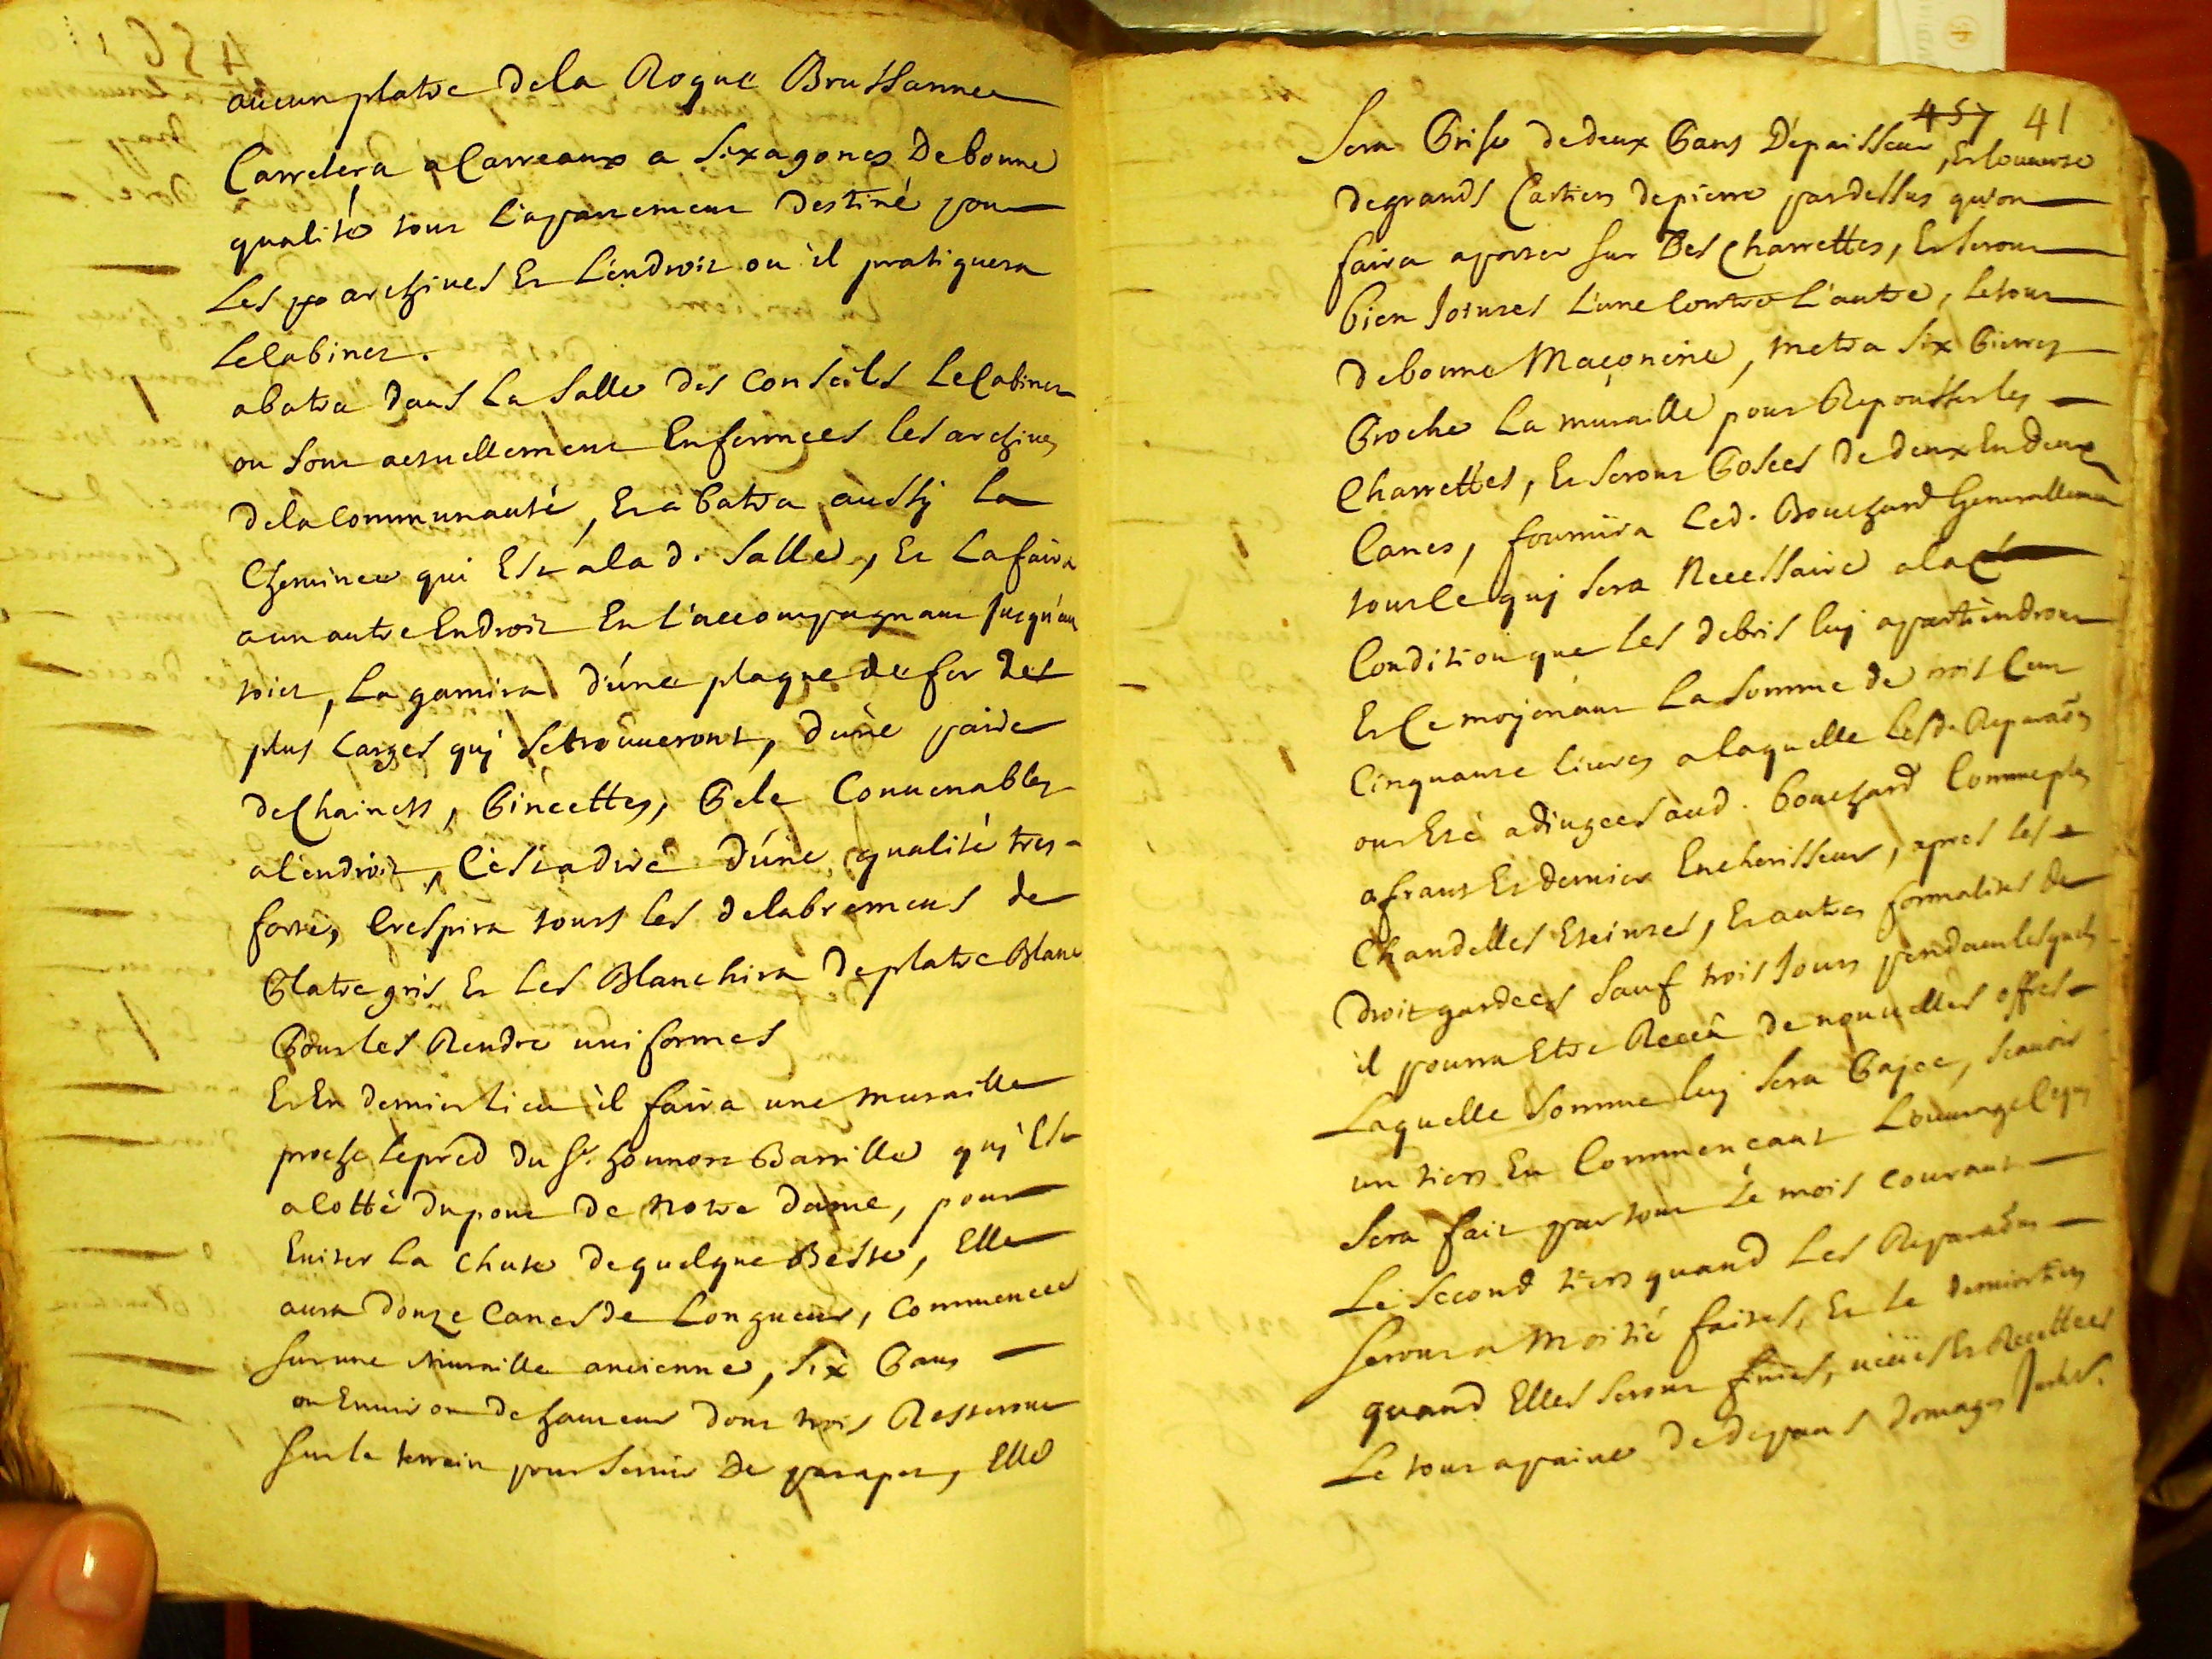 aucun platre dela Roque Brussanne
Carrelera a Carreaux a sixagones de bonne
qualité tout l'apartement destiné pour
les archives Et l'endroit ou il pratiquera
le Cabinet.
abatra dans la salle des conseils le Cabinet
ou sont actuellement Enfermées les archives
dela communauté, Et abatra aussy la
Cheminee qui Est a la d. salle, Et la faira
a un autre Endroit En l'accompagnant jusqu'au
toict, la garnira d'une plaque de fer des
plus larges quy se trouueront, d'une paire
de Chainets, Pincettes, Pele Conuenables
a l'endroit, C'est a dire d'une qualité tres-
forte, Crespira touts les delabremens de
Platre gris Et les Blanchira de platre Blanc
Pour les Rendre uniformes
Et En dernier lieu il faira une muraille
proche le pred du Sr. honnoré Barrille quy Est
a cotté du pont de notre dame, pour
Euiter la chute de quelque Beste, Elle
aura douze canes de Longueur, commencée
sur une muraille ancienne, six Pans
ou Enuiron de hauteur dont trois Resteront
sur le terrain pour seruir de parapet, Elle
457 41
sera Prise de deux Pans d'épaisseur, Et couuerte
de grands Cartiers de pierre par dessus qu'on
faira aporter sur des Charrettes, Et seront
bien jointes l'une Contre l'autre, le tout
de bonne Maçonerie, metra six Pierres
Proche la muraille pour Repousser les
Charrettes, Et seront Posées de deux En deux
Canes, fournira led. Bouchard Generallement
tout ce quy sera Necessaire a la
Condition que les debris luy apartiendront
Et Ce moyenant la somme de trois Cent
Cinquante liures a laquelle lesd. Reparaõns
ont Eté adjugées aud. Bouchard Comme plus
ofrant Et dernier Encherisseur, apres les
Chandelles Eteintes, Et autres formalités de
droit gardees sauf trois jours pendant lesquels
il pourra Etre Receu de nouuelles offres
Laquelle somme luy sera Payee, scauoir
un tiers En Commencant L'ouurage lequel
sera fait par tout le mois courant
Le second tiers quand les Reparaõns
seront a Moitié faites, Et le dernier tiers
quand Elles seront finies, ueües Et Recettees
Le tout a paine de depans domages